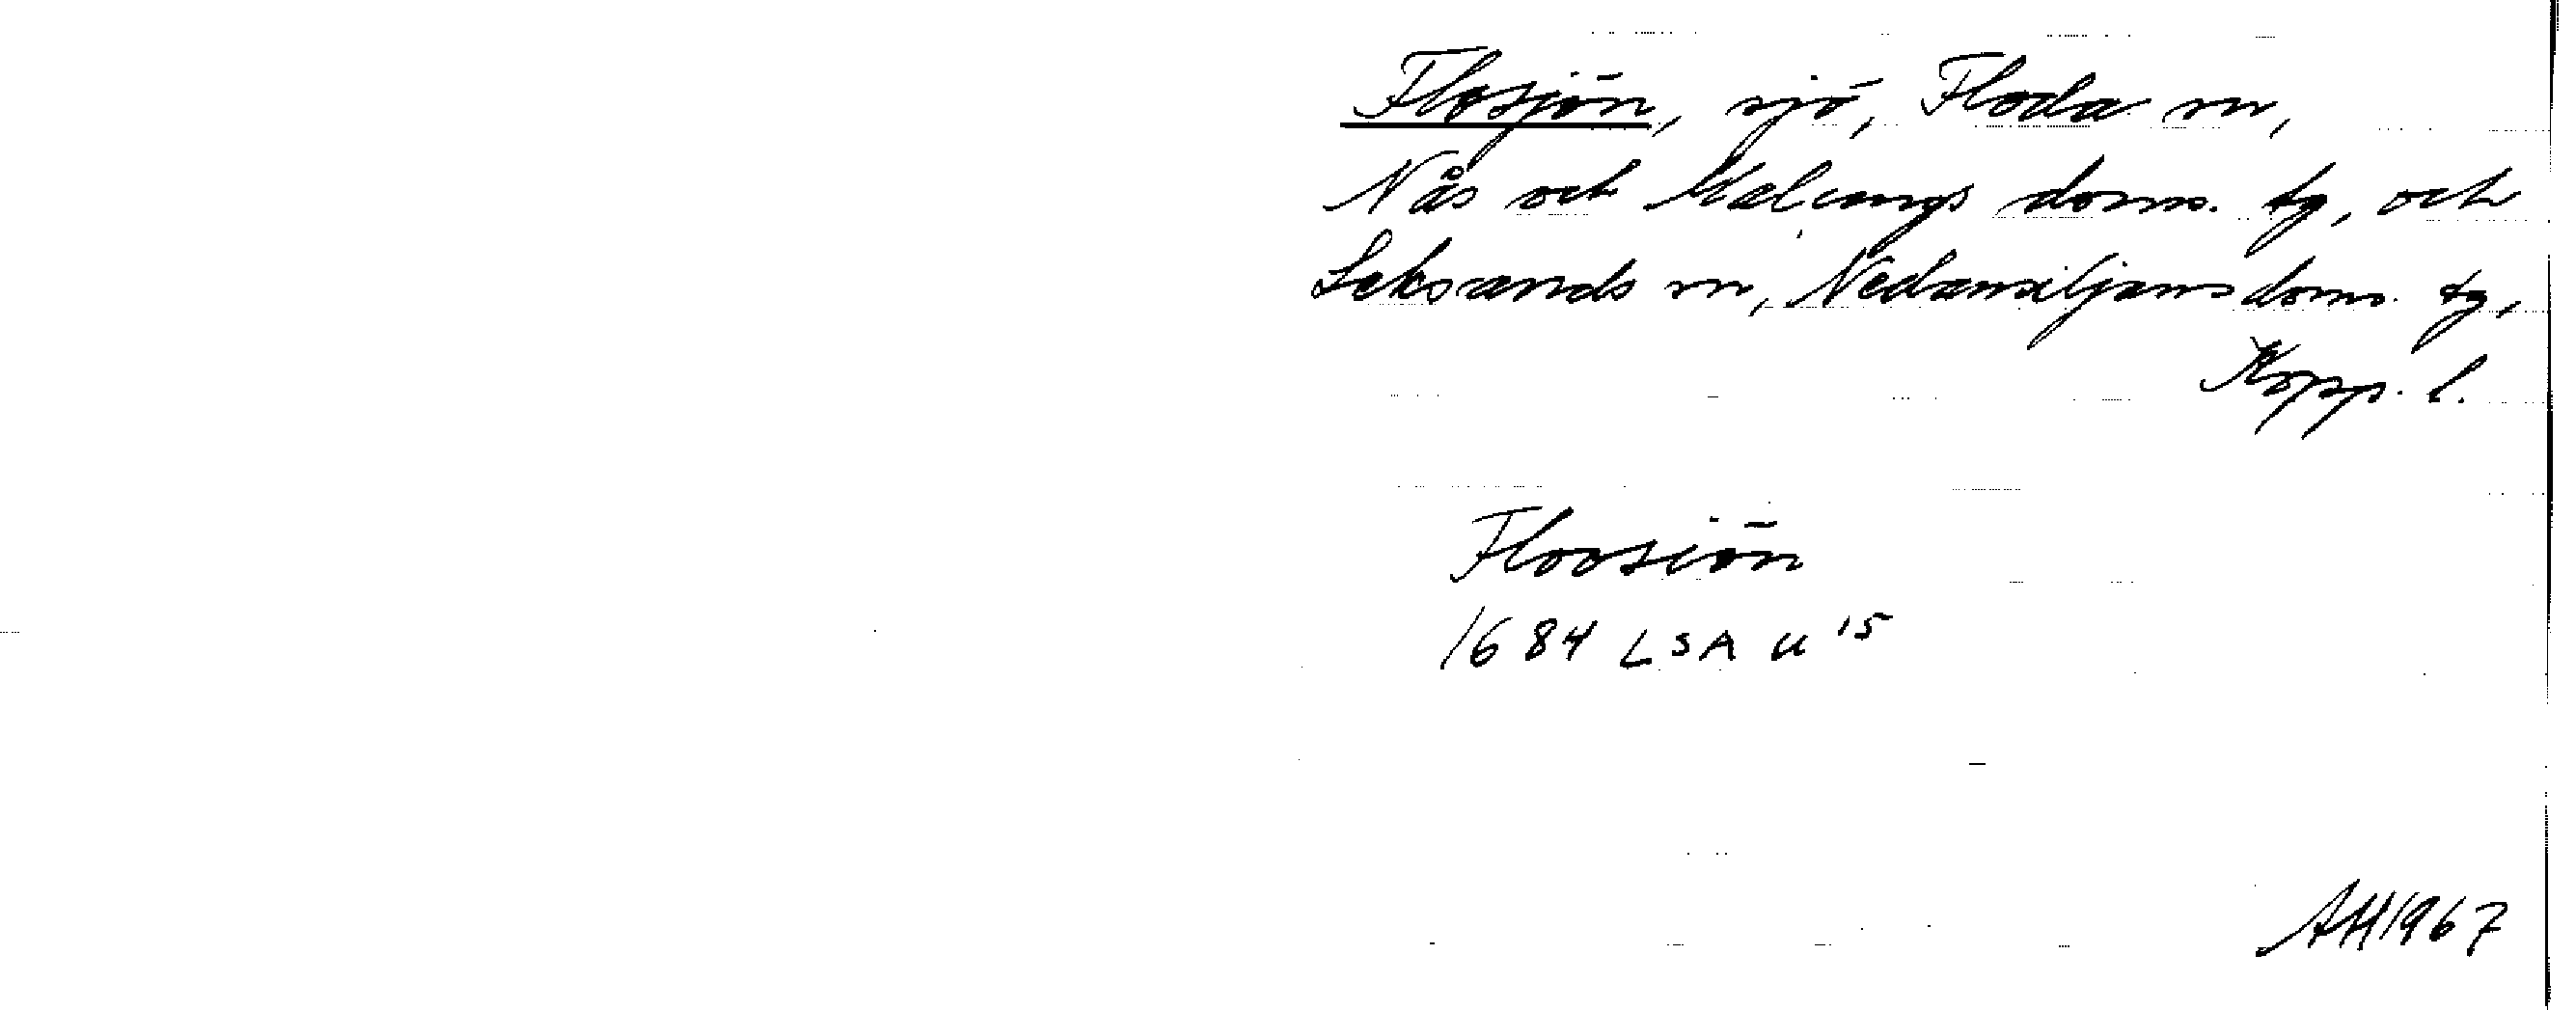 Flosjön, sjö, Floda sn,
Nås och Malungs doms. tg, och
Leksands sn, Nedansiljans doms. tg,
Kopp. l.
Floosiön
1684 LSA U 15
AH 1967